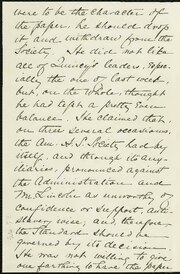 were to be the character of
the paper, he should drop
it and withdraw from the
Society. He did not like
all of Quincy's leaders, espe-
cially the one of last week
but, on the whole, thought
he had kept a pretty even
balance. She claimed that,
on three several occasions,
the Am. A. S. Society had by
itself, and through its aux-
iliaries, pronounced against
the Administration and
Mr. Lincoln as unworthy of
confidence or support, anti-
slavery wise; and, therefore,
the Standard should be
governed by its decision.
She was not willing to give
one farthing to have the paper